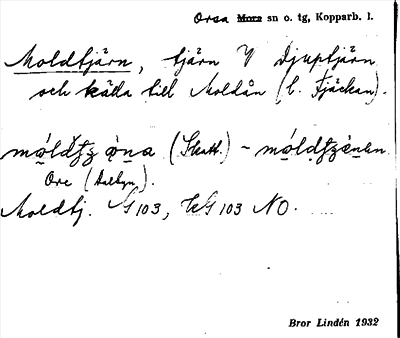 Orsa Mora sn o. tg, Kopparb. l.
Moldtjärn, tjärn V Djuptjärn
och källa till Moldån (t. Fjäckan).
(Skatt.) –
Ore (Dalbyn).
Moldtj. G 103, kG 103 NO.
Bror Lindén 1932